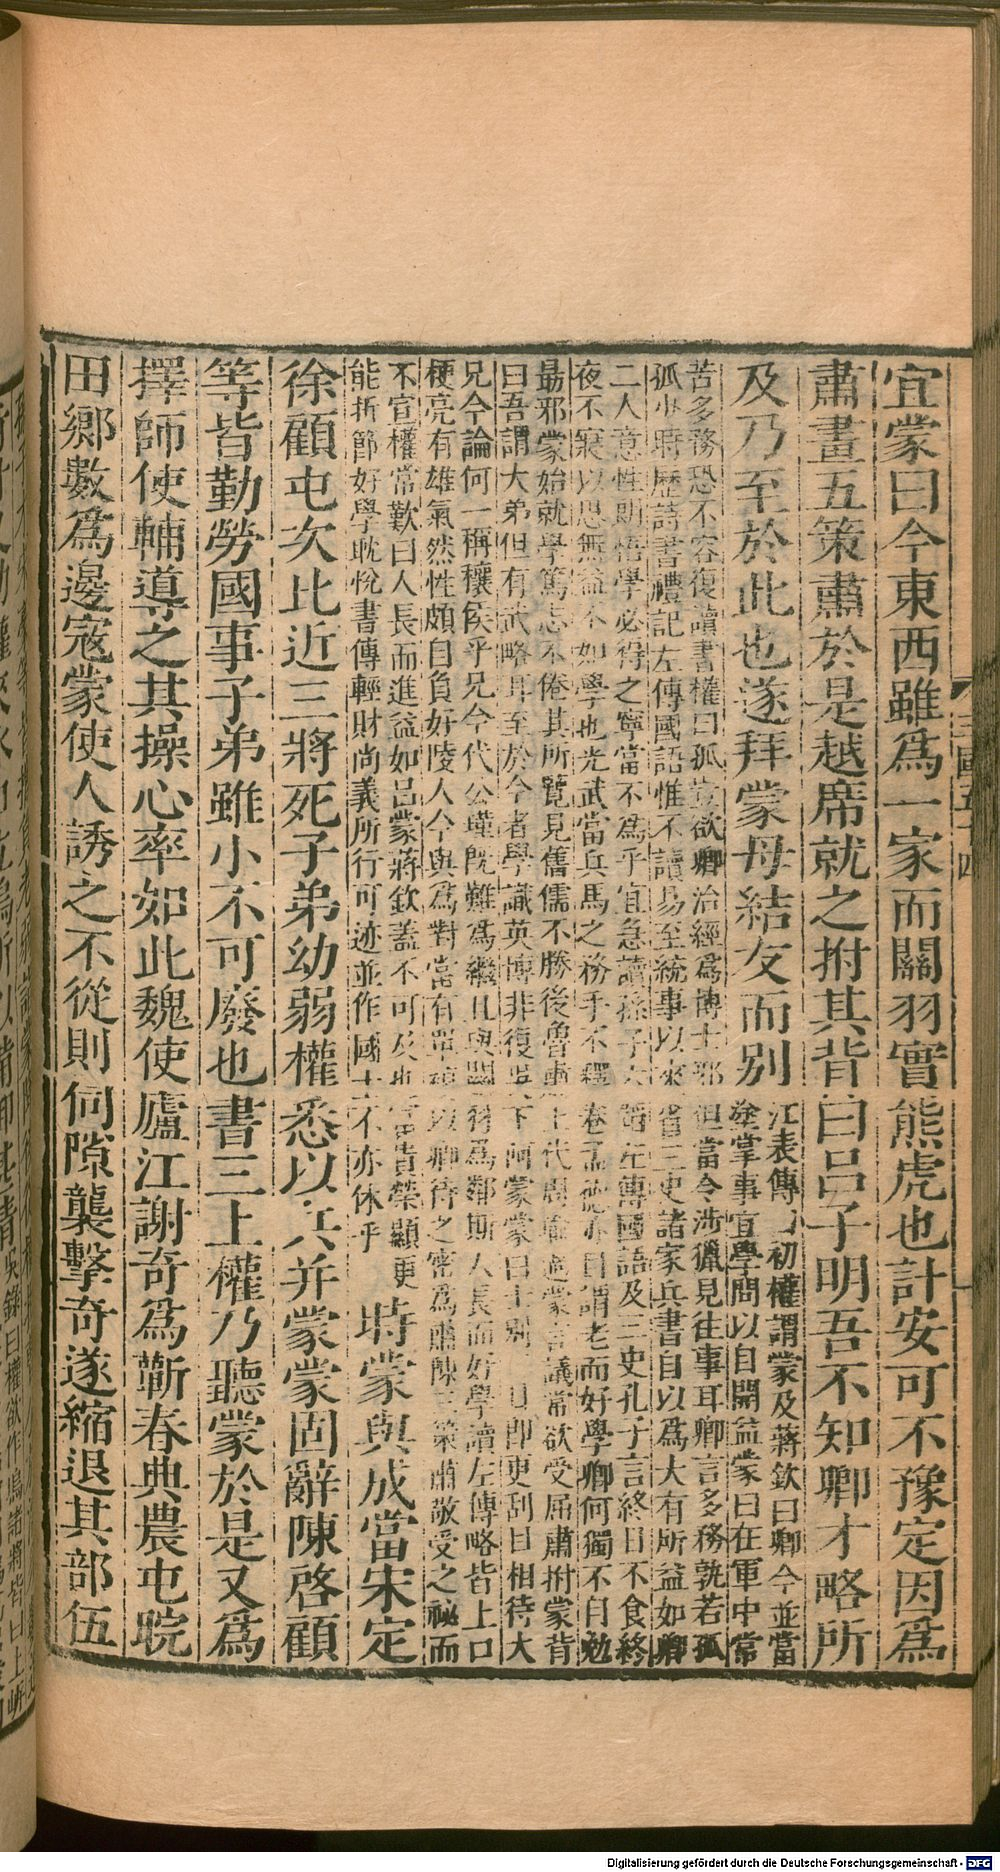 宜蒙曰今東西雖爲一家而關羽實熊虎也計安可不豫定因爲
肅畫五策肅於是越席就之拊其背曰呂子明吾不知卿才略所
及乃至於此也遂拜蒙母結友而別
江表傳曰初權謂蒙及蔣欽曰卿今並當
塗掌事宜學問以自開益蒙曰在軍中常
苦多務恐不容復讀書權曰孤豈欲卿治經爲博士邪但當令涉獵見往事耳卿言多務孰若孤
孤少時歷詩書禮記左傳國語惟不讀易至統事以來省三史諸家兵書自以爲大有所益如卿
二人意性朗悟學必得之寧當不爲乎宜急讀孫子六韜左傳國語及三史孔子言終日不食終
夜不寢以思無益不如學也光武當兵馬之務手不釋卷孟德亦自謂老而好學卿何獨不自勉
勗邪蒙始就學篤志不倦其所覽見舊儒不勝後魯肅上代周瑜過蒙言議常欲受屈肅拊蒙背
曰吾謂大弟但有武略耳至於今者學識英博非復吳下阿蒙蒙曰士別三日即更刮目相待大
兄今論何一稱穰侯乎兄今代公瑾旣難爲繼且與關羽爲鄰斯人長而好學讀左傳略皆上口
梗亮有雄氣然性頗自負好陵人今與爲對當有單複以卿待之密爲肅陳三策肅敬受之祕而
不宣權常歎曰人長而進益如呂蒙蔣欽蓋不可及也富貴榮顯更
能折節好學耽悅書傳輕財尚義所行可迹並作國士不亦休乎
時蒙與成當宋定
徐顧屯次比近三將死子弟幼弱權悉以兵并蒙蒙固辭陳啓顧
等皆勤勞國事子弟雖小不可廢也書三上權乃聽蒙於是又爲
擇師使輔導之其操心率如此魏使廬江謝奇爲蘄春典農屯晥
田鄉數爲邊寇蒙使人誘之不從則伺隙襲擊奇遂縮退其部伍
三國五十四
Digitalisierung gefördert durch die Deutsche Forschungsgemeinschaft - DFG